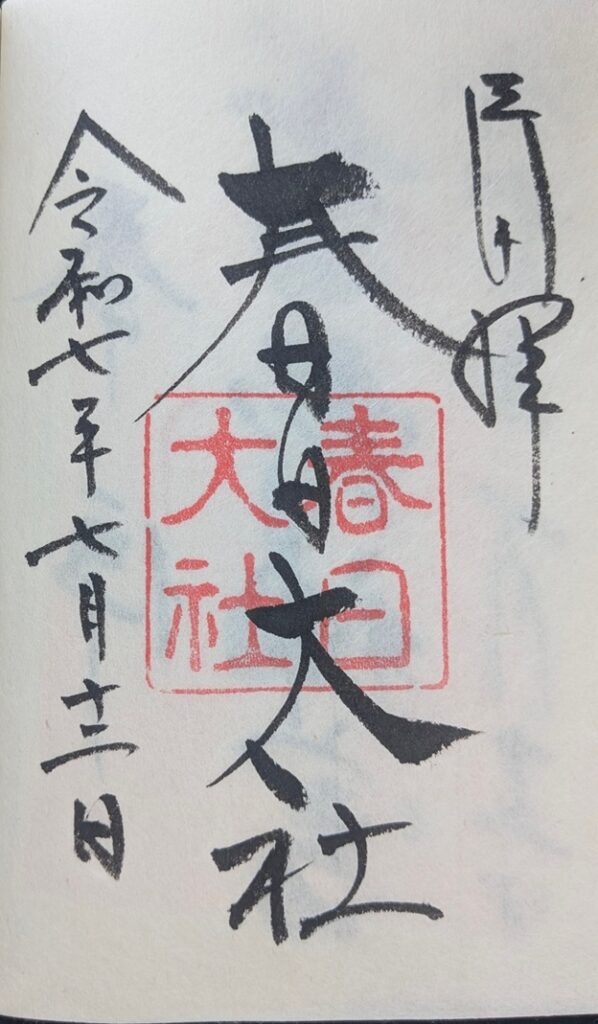 春日大社
令和七年七月十三日
春日
大社